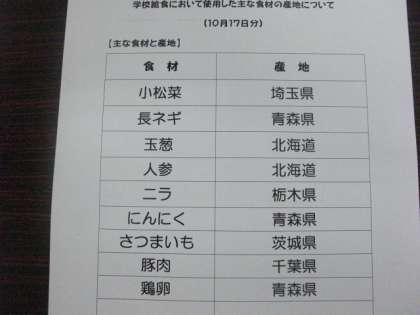 学校給食において使用した主な食材の産地について
(10月17日分)
【主な食材と産地】
食材 産地
小松菜 埼玉県
長ネギ 青森県
玉葱 北海道
人参 北海道
ニラ 栃木県
にんにく 青森県
さつまいも 茨城県
豚肉 千葉県
鶏卵 青森県